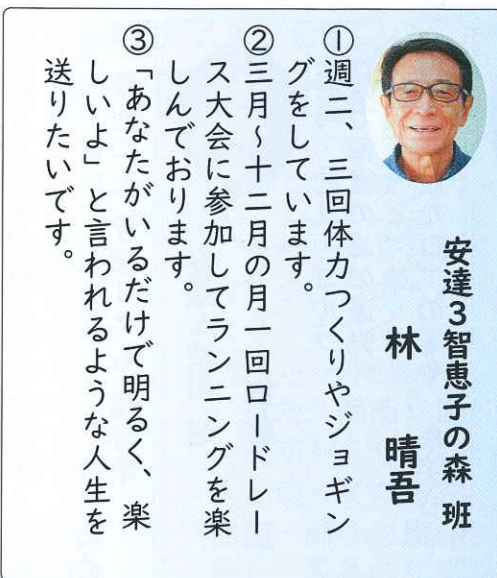 安達3智恵子の森 班
林 晴吾
①週二、三回体力つくりやジョギン
グをしています。
②三月~十二月の月一回ロードレー
ス大会に参加してランニングを楽
しんでおります。
③「あなたがいるだけで明るく、楽
しいよ」と言われるような人生を
送りたいです。